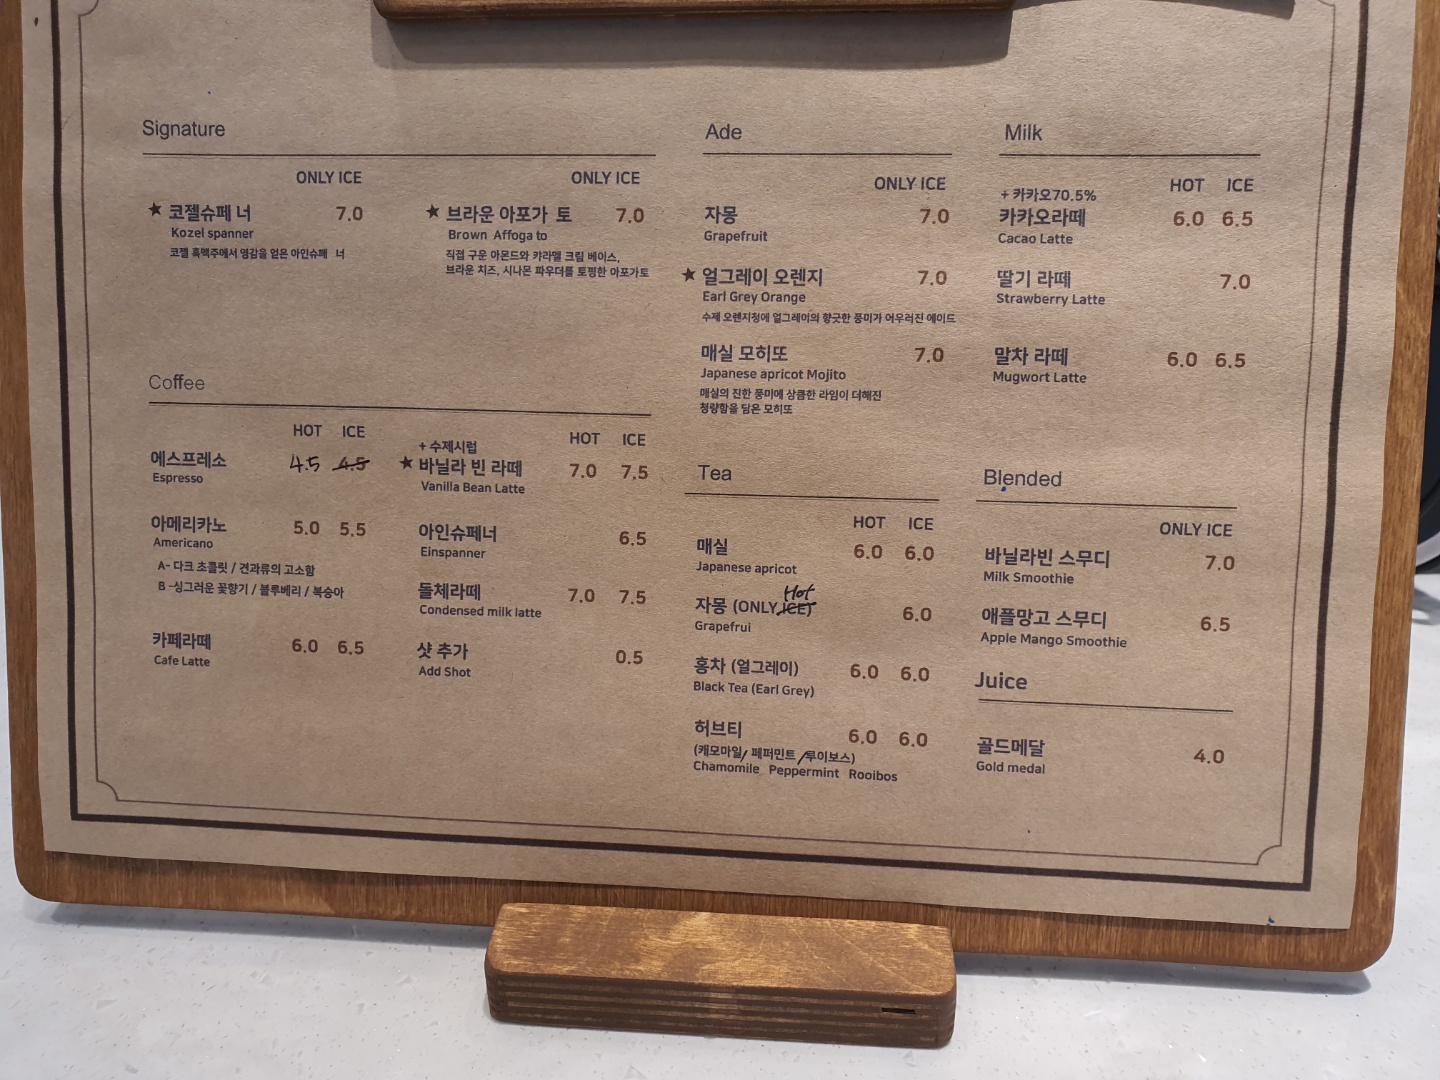 Signature
ONLY ICE
★ 코젤슈페 너 7.0
Kozel spanner
코젤 흑맥주에서 영감을 얻은 아인슈페 너
ONLY ICE
★ 브라운 아포가 토 7.0
Brown Affoga to
직접 구운 아몬드와 캬라멜 크림 베이스,
브라운 치즈, 시나몬 파우더를 토핑한 아포가토
Coffee
HOT ICE
에스프레소 4.5 4.5
Espresso
아메리카노 5.0 5.5
Americano
A- 다크 초콜릿 / 견과류의 고소함
B -싱그러운 꽃향기 / 블루베리 / 복숭아
카페라떼 6.0 6.5
Cafe Latte
HOT ICE
+ 수제시럽
★ 바닐라 빈 라떼 7.0 7.5
Vanilla Bean Latte
아인슈페너 6.5
Einspanner
돌체라떼 7.0 7.5
Condensed milk latte
샷 추가 0.5
Add Shot
Ade
ONLY ICE
자몽 7.0
Grapefruit
★ 얼그레이 오렌지 7.0
Earl Grey Orange
수제 오렌지청에 얼그레이의 향긋한 풍미가 어우러진 에이드
매실 모히또 7.0
Japanese apricot Mojito
매실의 진한 풍미에 상큼한 라임이 더해진
청량함을 담은 모히또
Tea
HOT ICE
매실 6.0 6.0
Japanese apricot
Hot
자몽 (ONLY ICE) 6.0
Grapefrui
홍차 (얼그레이) 6.0 6.0
Black Tea (Earl Grey)
허브티 6.0 6.0
(캐모마일/ 페퍼민트 /루이보스)
Chamomile Peppermint Rooibos
Milk
HOT ICE
+ 카카오70.5%
카카오라떼 6.0 6.5
Cacao Latte
딸기 라떼 7.0
Strawberry Latte
말차 라떼 6.0 6.5
Mugwort Latte
Blended
ONLY ICE
바닐라빈 스무디 7.0
Milk Smoothie
애플망고 스무디 6.5
Apple Mango Smoothie
Juice
골드메달 4.0
Gold medal